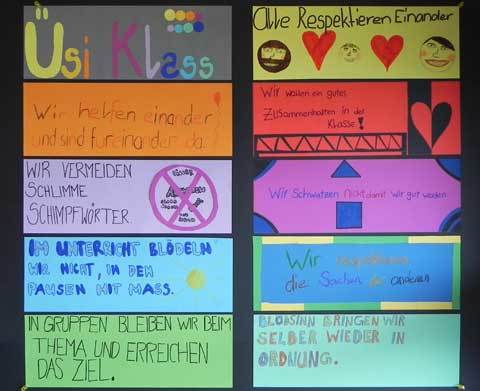 Üsi Klass
Wir helfen einander
und sind füreinander da!
WIR VERMEIDEN
SCHLIMME
SCHIMPFWÖRTER.
IM UNTERRICHT BLÖDELN
WIR NICHT, IN DEN
PAUSEN MIT MASS.
IN GRUPPEN BLEIBEN WIR BEIM
THEMA UND ERREICHEN
DAS ZIEL.
Alle Respektieren Einander
Wir wollen ein gutes
Zusammenhalten in der
Klasse!
Wir Schwatzen nicht damit wir gut
Wir respektieren
die Sachen der anderen
BLÖDSINN BRINGEN WIR
SELBER WIEDER IN
ORDNUNG.